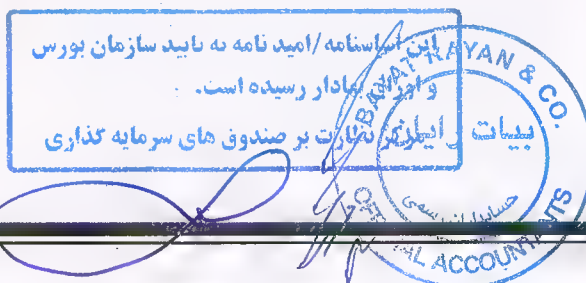 این اساسنامه/امید نامه به تایید سازمان بورس
و اوراق بهادار رسیده است.
مرکز نظارت بر صندوق های سرمایه گذاری
BAYAT RAYAN & CO.
بیات رایان
حسابداران رسمی
OFFICIAL ACCOUNTANTS